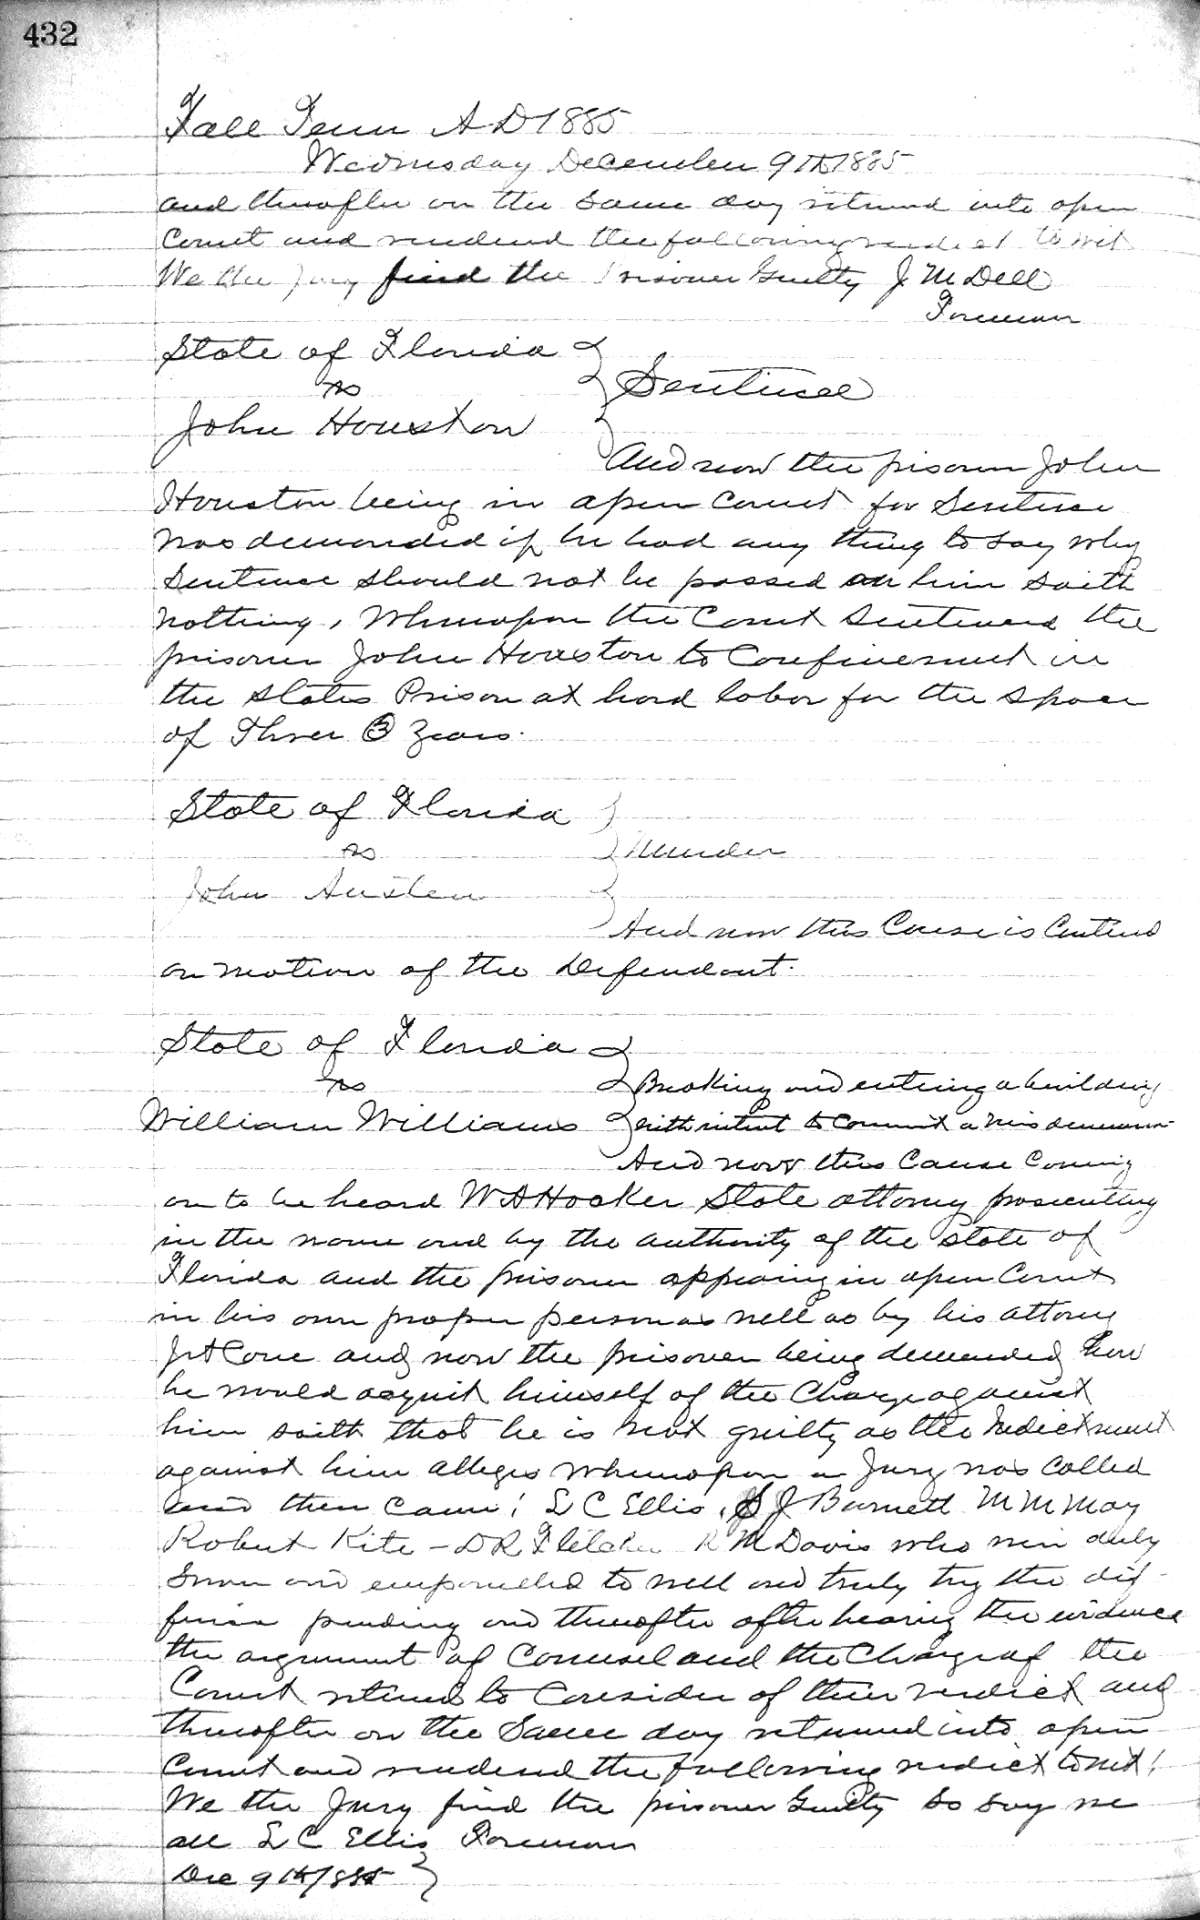 432
Fall Term A D 1885
Wednesday December 9th 1885
and thereafter on the same day returned into open
Court and rendered the following verdict to wit
We the Jury find the Prisoner Guilty J M Dell
Foreman
State of Florida
vs
Sentence
John Houston
And now the prisoner John
Houston being in open Court for Sentence
was demanded if he had any thing to say why
Sentence should not be passed on him saith
nothing, Whereupon the Court Sentenced the
prisoner John Houston to Confinement in
the States Prison at hard labor for the space
of Three 3 Years.
State of Florida
vs
Murder
John Austen
And now this Cause is Contined
on motion of the Defendant.
State of Florida
vs
Breaking and entering a building
William Williams
with intent to Commit a misdemeanor
And now this Cause Coming
on to be heard W A Hocker State attorney prosecuting
in the name and by the authority of the State of
Florida and the prisoner appearing in open Court
in his own proper person as well as by his attorney
Cone and now the prisoner being demanded how
he would acquit himself of the Charge against
him saith that he is not guilty as the Indictment
against him alleges Whereupon a Jury was Called
and then came: L C Ellis, S J Burnett M M May
Robert Kite - D R Fletcher R M Davis who were duly
Sworn and empanelled to well and truly try the dif-
ference pending and thereafter after hearing the evidence
the argument of Counsel and the Charge of the
Court retired to Consider of their verdict and
thereafter on the Same day returned into open
Court and rendered the following verdict to wit!
We the Jury find the prisoner Guilty So Say we
all L C Ellis Foreman
Dec 9th 1885